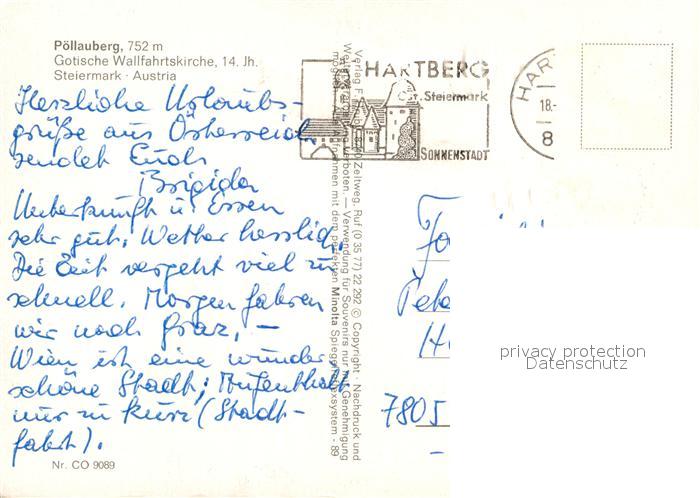 Pöllauberg, 752 m
Gotische Wallfahrtskirche, 14. Jh.
Steiermark · Austria
Herzliche Urlaubs-
grüße aus Österreich
sendet Euch
Brigida
Unterkunft u. Essen
sehr gut, Wetter herrlich.
Die Zeit vergeht viel zu
schnell. Morgen fahren
wir nach Graz, —
Wien ist eine wunder
schöne Stadt; Aufenthalt
nur zu kurz (Stadt-
fahrt).
Nr. CO 9089
Verlag F. Zeltweg. Ruf (0 35 77) 22 292 © Copyright · Nachdruck und
verboten. — Verwendung für Souvenirs nur mit Genehmigung
Aufnahmen mit dem perfekten Minolta Spiegelreflexsystem - 89
HARTBERG
Ost-Steiermark
SONNENSTADT
HAR
18.-
8
Fa
Pete
H
7805
privacy protection
Datenschutz